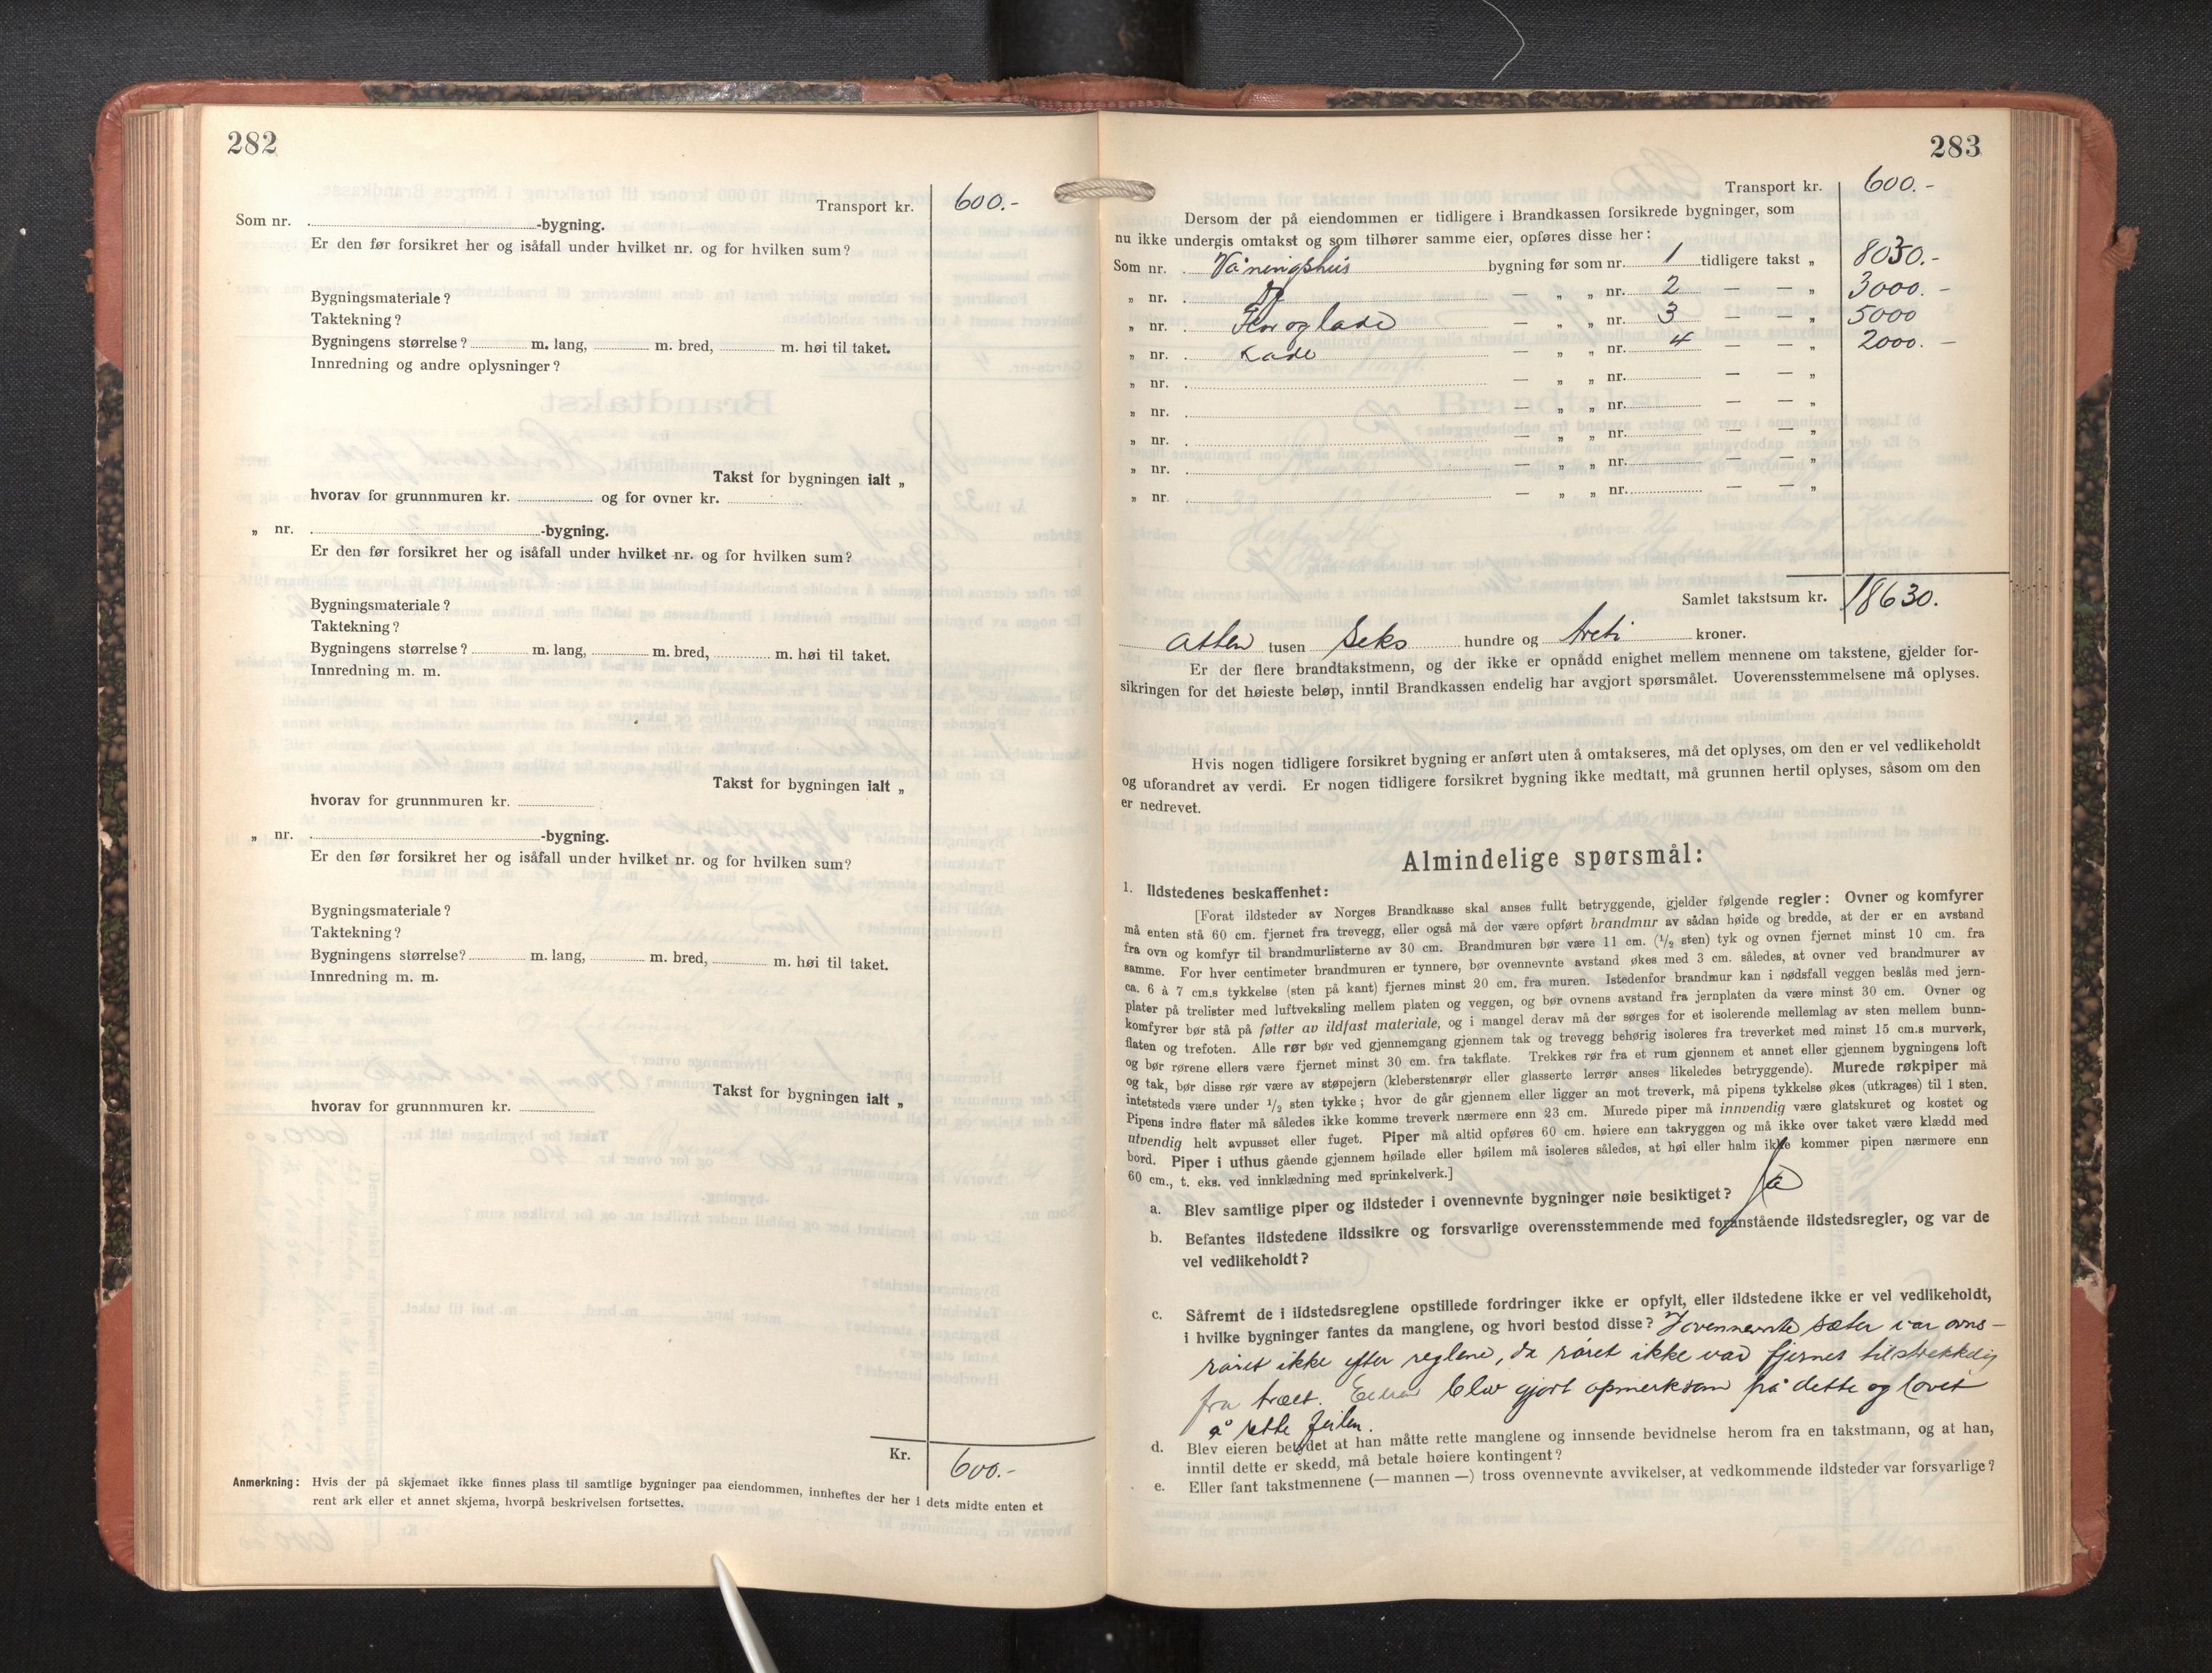 282
Transport kr. 600.-
Som nr. -bygning.
Er den før forsikret her og isåfall under hvilket nr. og for hvilken sum?
Bygningsmateriale?
Taktekning?
Bygningens størrelse? m. lang, m. bred, m. høi til taket.
Innredning og andre oplysninger?
Takst for bygningen ialt „
hvorav for grunnmuren kr. og for ovner kr.
„ nr. -bygning.
Er den før forsikret her og isåfall under hvilket nr. og for hvilken sum?
Bygningsmateriale?
Taktekning?
Bygningens størrelse? m. lang, m. bred, m. høi til taket.
Innredning m. m.
Takst for bygningen ialt „
hvorav for grunnmuren kr.
„ nr. -bygning.
Er den før forsikret her og isåfall under hvilket nr. og for hvilken sum?
Bygningsmateriale?
Taktekning?
Bygningens størrelse? m. lang, m. bred, m. høi til taket.
Innredning m. m.
Takst for bygningen ialt „
hvorav for grunnmuren kr.
Kr. 600.-
Anmerkning: Hvis der på skjemaet ikke finnes plass til samtlige bygninger paa eiendommen, innheftes der her i dets midte enten et
rent ark eller et annet skjema, hvorpå beskrivelsen fortsettes.
283
Transport kr. 600.-
Dersom der på eiendommen er tidligere i Brandkassen forsikrede bygninger, som
nu ikke undergis omtakst og som tilhører samme eier, opføres disse her:
Som nr. Våningshus bygning før som nr. 1 tidligere takst „ 8030.-
„ nr. — „ „ nr. 2 — — „ 3000.-
„ nr. Flor og lade — „ „ nr. 3 — — „ 5000
„ nr. Lade — „ „ nr. 4 — — „ 2000.-
„ nr. — „ „ nr. — — „
„ nr. — „ „ nr. — — „
„ nr. — „ „ nr. — — „
„ nr. — „ „ nr. — — „
„ nr. — „ „ nr. — — „
Samlet takstsum kr. 18630.
atten tusen seks hundre og treti kroner.
Er der flere brandtakstmenn, og der ikke er opnådd enighet mellem mennene om takstene, gjelder for-
sikringen for det høieste beløp, inntil Brandkassen endelig har avgjort spørsmålet. Uoverensstemmelsene må oplyses.
Hvis nogen tidligere forsikret bygning er anført uten å omtakseres, må det oplyses, om den er vel vedlikeholdt
og uforandret av verdi. Er nogen tidligere forsikret bygning ikke medtatt, må grunnen hertil oplyses, såsom om den
er nedrevet.
Almindelige spørsmål:
1. Ildstedenes beskaffenhet:
[Forat ildsteder av Norges Brandkasse skal anses fullt betryggende, gjelder følgende regler: Ovner og komfyrer
må enten stå 60 cm. fjernet fra trevegg, eller også må der være opført brandmur av sådan høide og bredde, at der er en avstand
fra ovn og komfyr til brandmurlisterne av 30 cm. Brandmuren bør være 11 cm. (1/2 sten) tyk og ovnen fjernet minst 10 cm. fra
samme. For hver centimeter brandmuren er tynnere, bør ovennevnte avstand økes med 3 cm. således, at ovner ved brandmurer av
ca. 6 à 7 cm.s tykkelse (sten på kant) fjernes minst 20 cm. fra muren. Istedenfor brandmur kan i nødsfall veggen beslås med jern-
plater på trelister med luftveksling mellem platen og veggen, og bør ovnens avstand fra jernplaten da være minst 30 cm. Ovner og
komfyrer bør stå på føtter av ildfast materiale, og i mangel derav må der sørges for et isolerende mellemlag av sten mellem bunn-
flaten og trefoten. Alle rør bør ved gjennemgang gjennem tak og trevegg behørig isoleres fra treverket med minst 15 cm.s murverk,
og bør rørene ellers være fjernet minst 30 cm. fra takflate. Trekkes rør fra et rum gjennem et annet eller gjennem bygningens loft
og tak, bør disse rør være av støpejern (kleberstensrør eller glasserte lerrør anses likeledes betryggende). Murede røkpiper må
intetsteds være under 1/2 sten tykke; hvor de går gjennem eller ligger an mot treverk, må pipens tykkelse økes (utkrages) til 1 sten.
Pipens indre flater må således ikke komme treverk nærmere enn 23 cm. Murede piper må innvendig være glatskuret og kostet og
utvendig helt avpusset eller fuget. Piper må altid opføres 60 cm. høiere enn takryggen og må ikke over taket være klædd med
bord. Piper i uthus gående gjennem høilade eller høilem må isoleres således, at høi eller halm ikke kommer pipen nærmere enn
60 cm., t. eks. ved innklædning med sprinkelverk.]
a. Blev samtlige piper og ildsteder i ovennevnte bygninger nøie besiktiget? Ja
b. Befantes ildstedene ildssikre og forsvarlige overensstemmende med foranstående ildstedsregler, og var de
vel vedlikeholdt?
c. Såfremt de i ildstedsreglene opstillede fordringer ikke er opfylt, eller ildstedene ikke er vel vedlikeholdt,
i hvilke bygninger fantes da manglene, og hvori bestod disse? I ovennevnte sæter var ovns-
røret ikke efter reglene, da røret ikke var fjernet tilstrekkelig
fra træet. Eieren blev gjort opmerksom på dette og lovet
å rette feilen.
d. Blev eieren betydet at han måtte rette manglene og innsende bevidnelse herom fra en takstmann, og at han,
inntil dette er skedd, må betale høiere kontingent?
e. Eller fant takstmennene (— mannen —) tross ovennevnte avvikelser, at vedkommende ildsteder var forsvarlige?